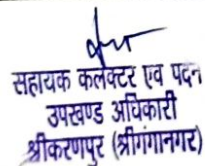 सहायक कलेक्टर एवं पदेन
उपखण्ड अधिकारी
श्रीकरणपुर (श्रीगंगानगर)